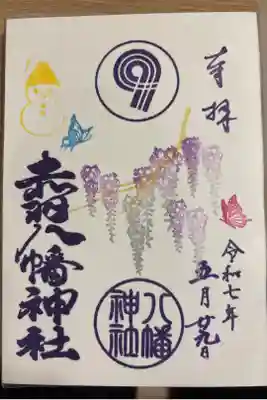 奉拝
令和七年
五月廿九日
赤羽八幡神社
八幡
神社